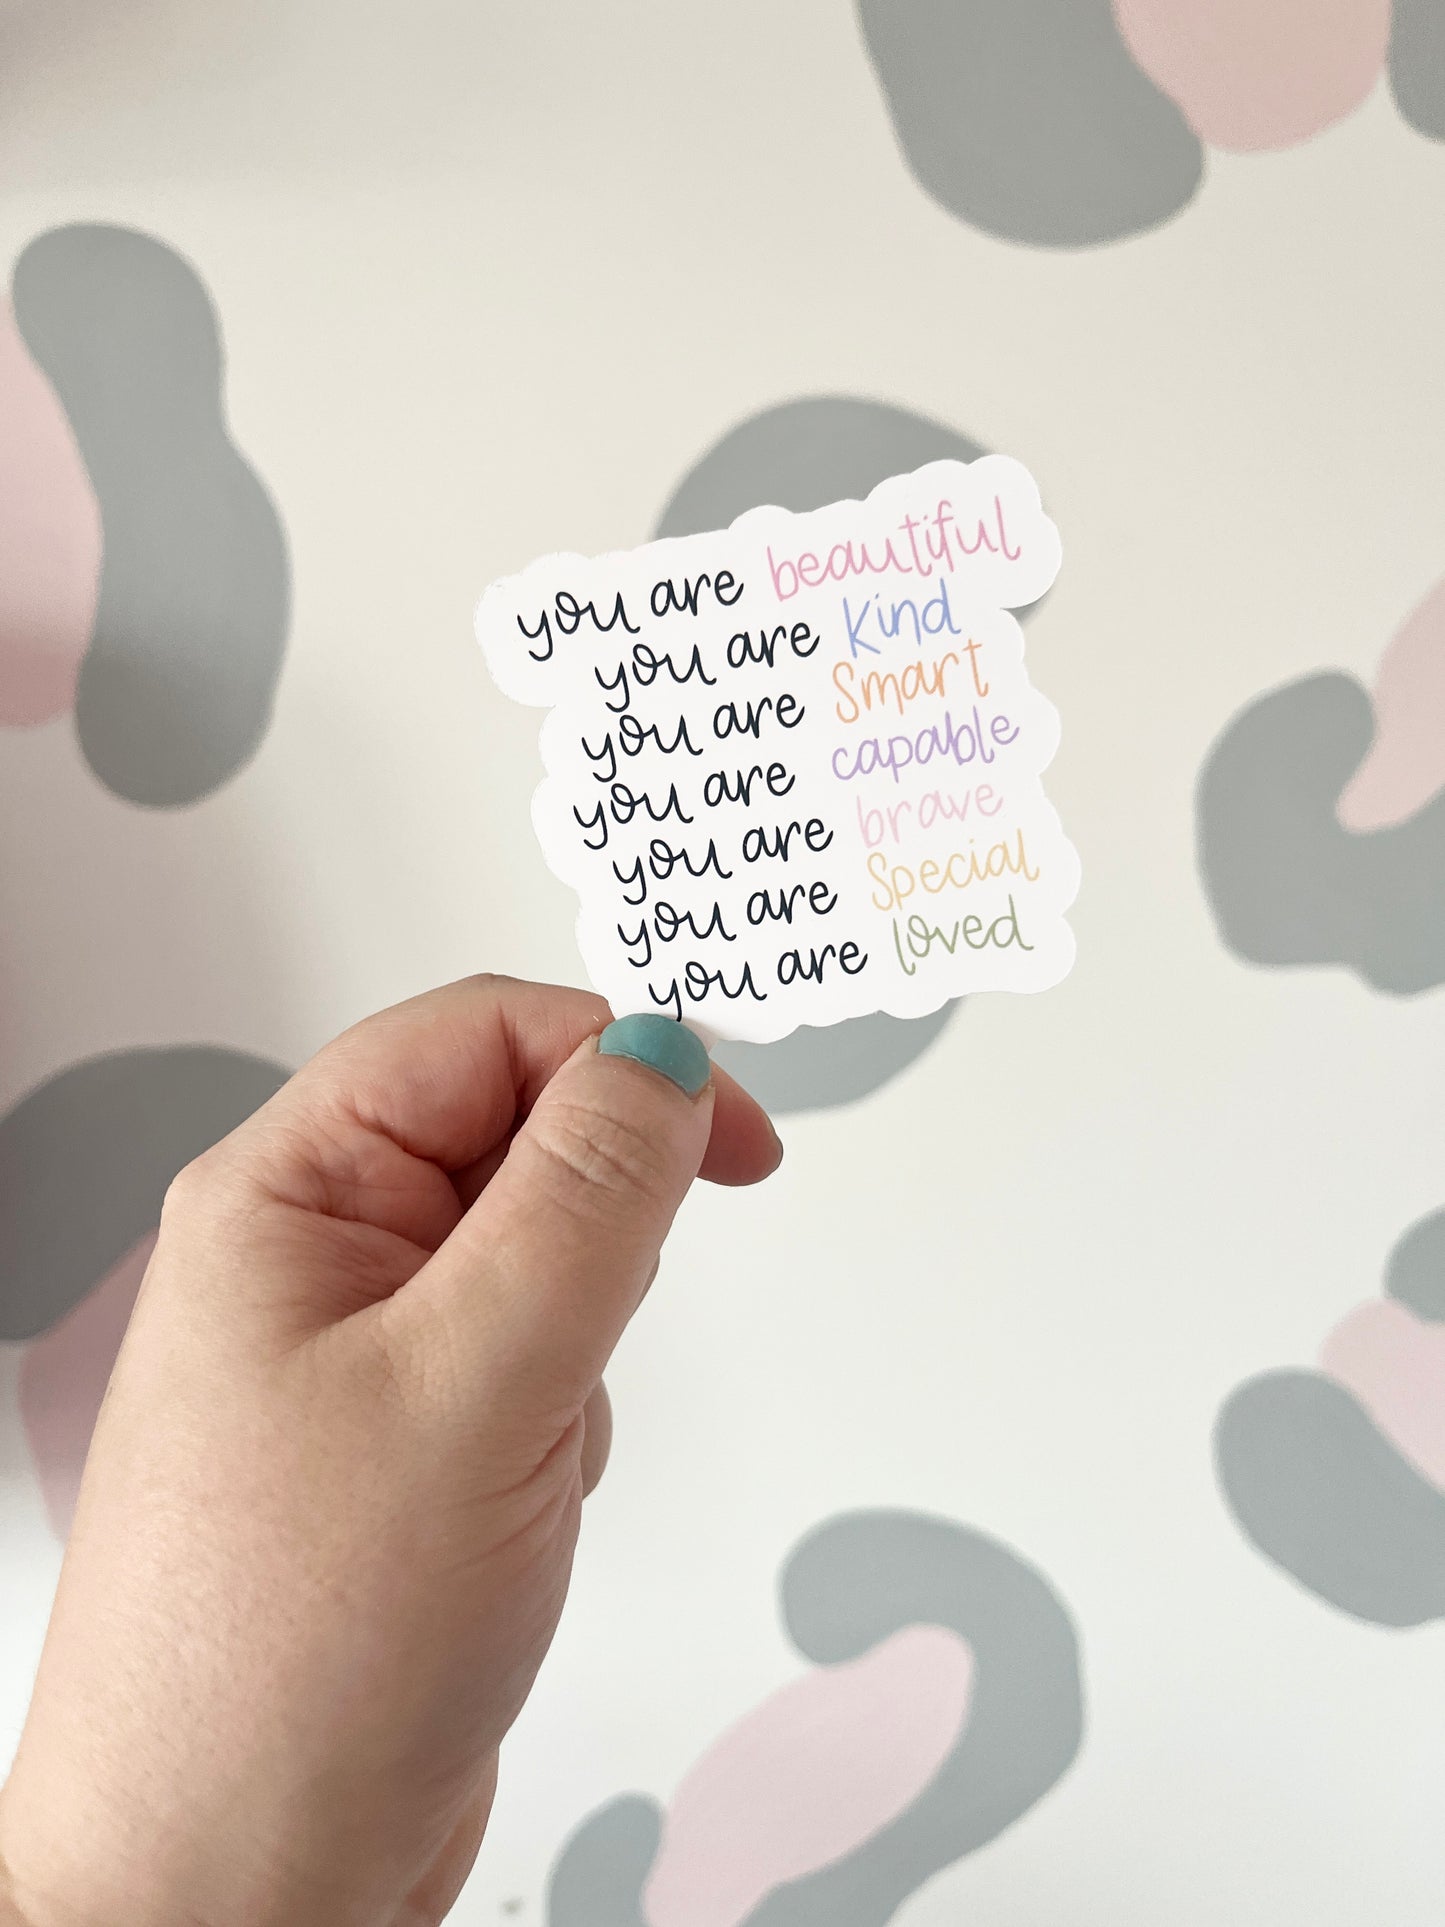 you are beautiful
you are kind
you are Smart
you are capable
you are brave
you are Special
you are loved